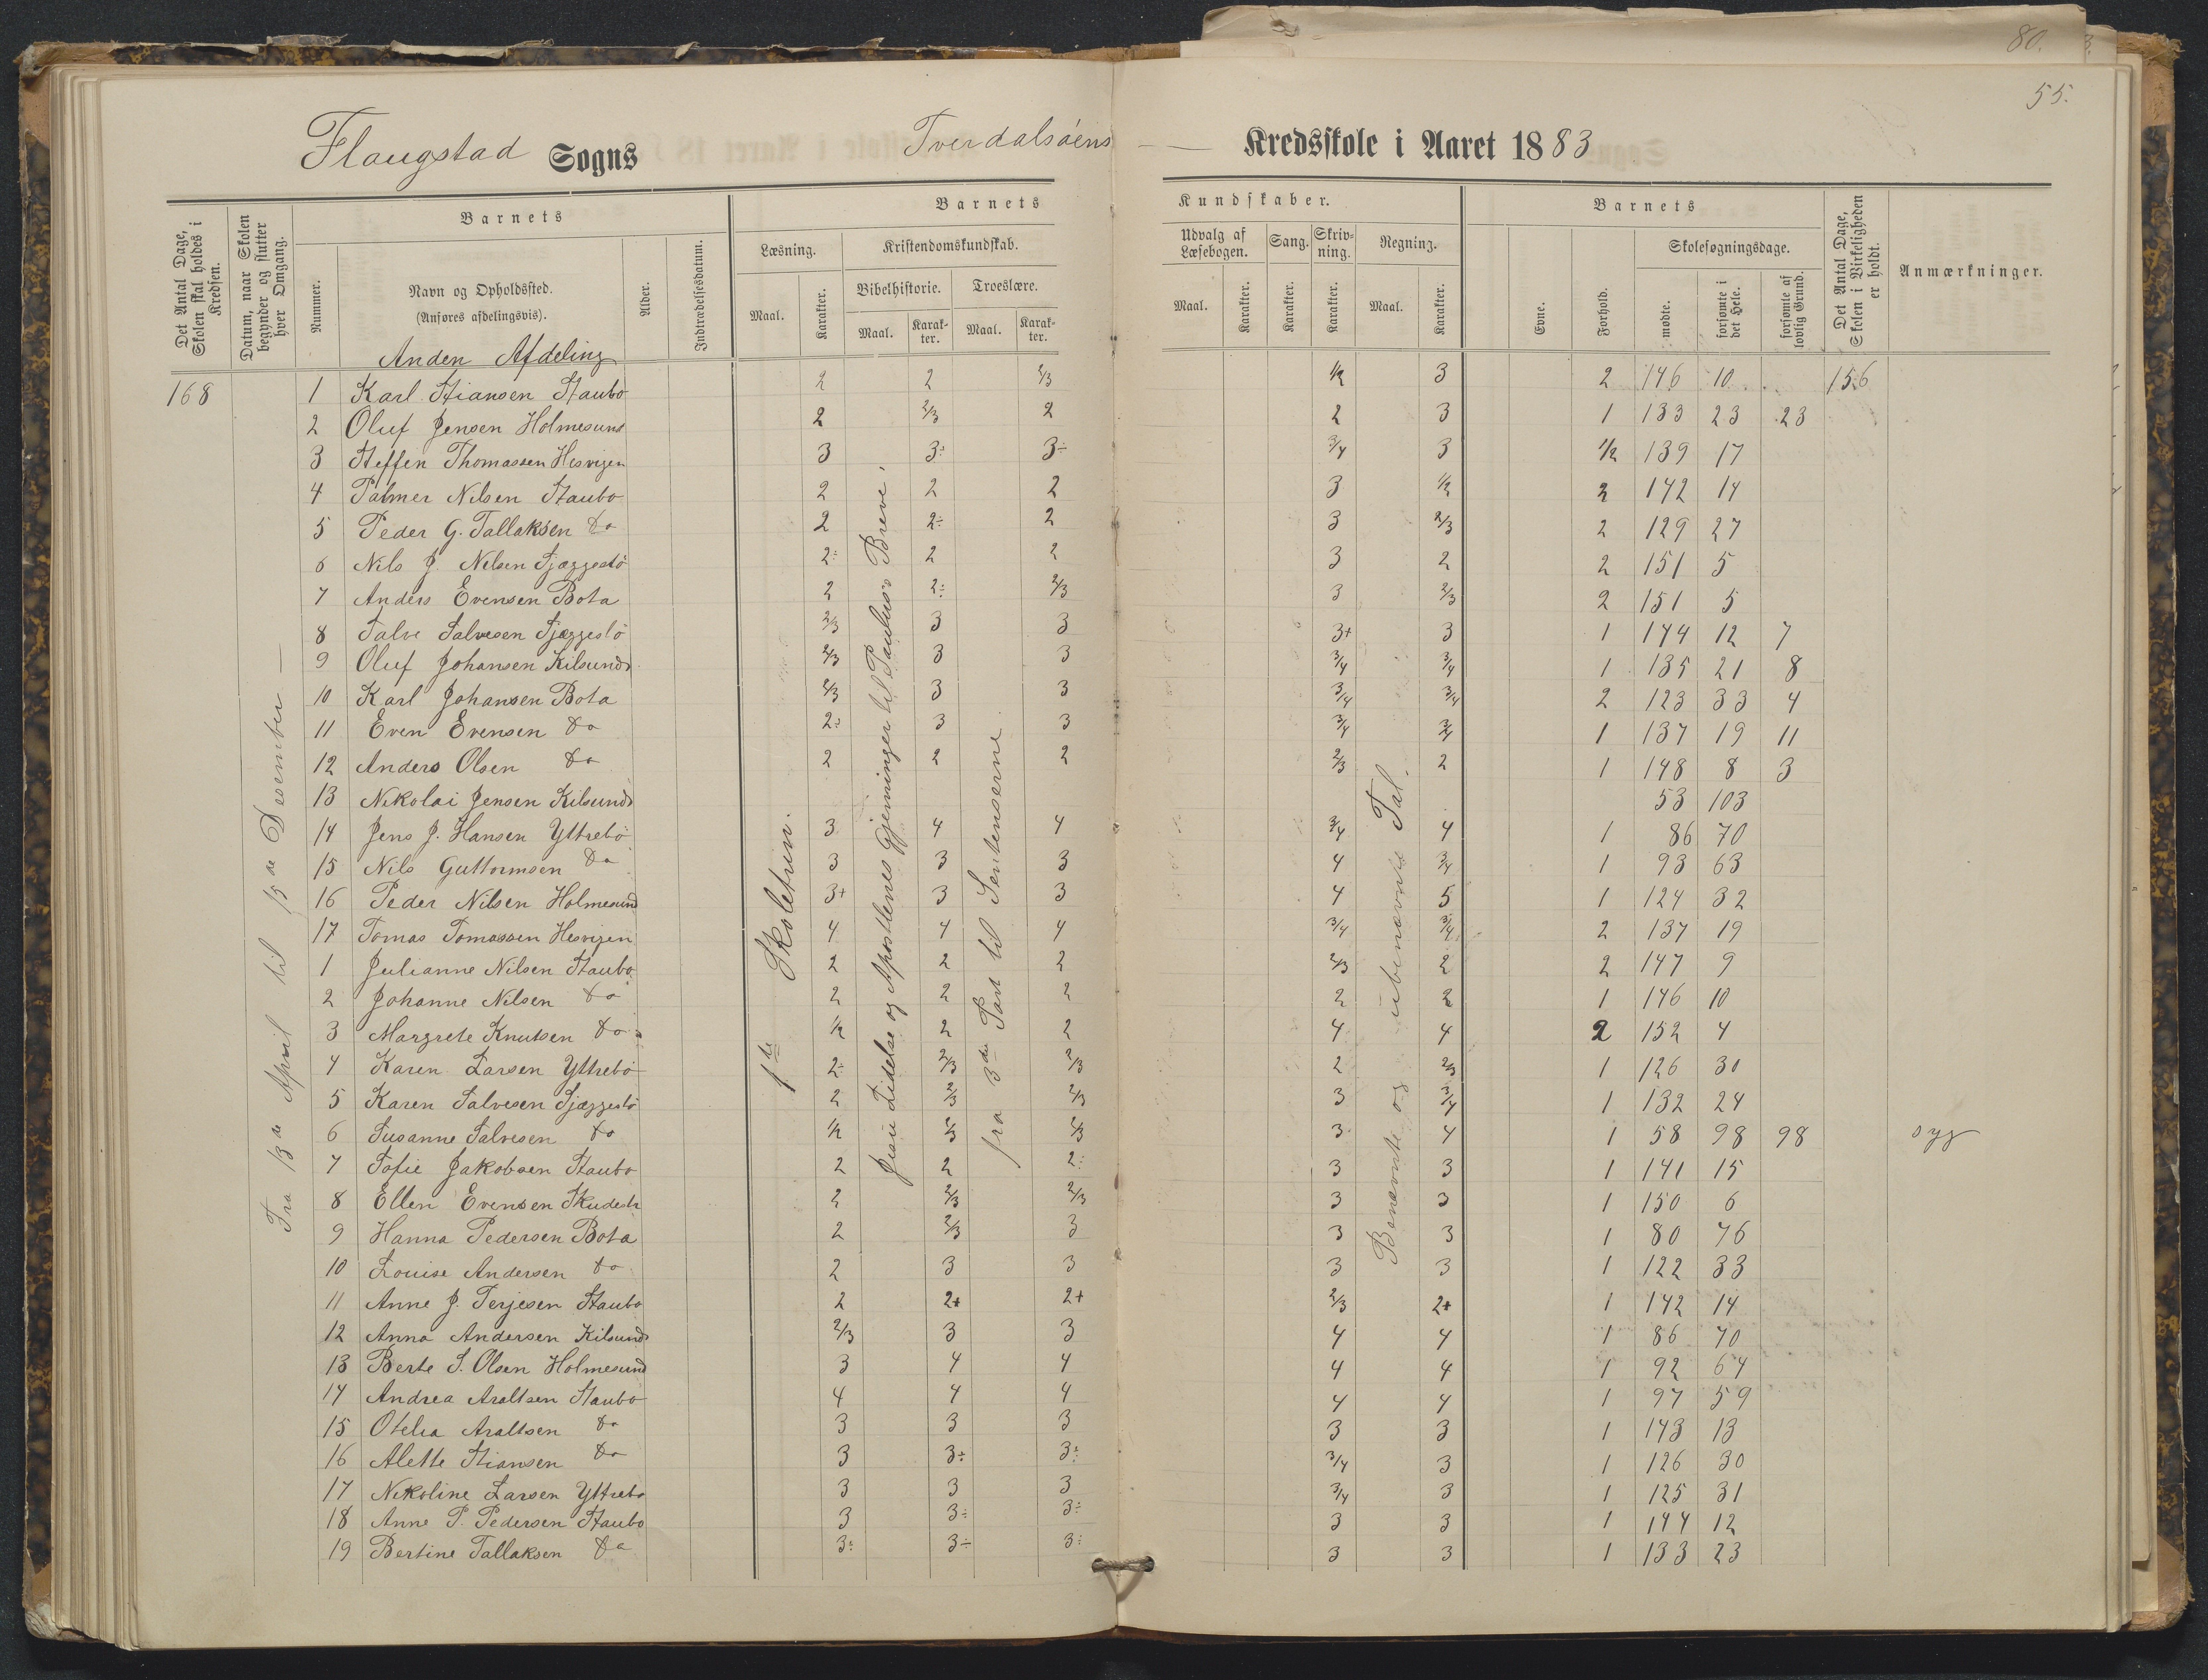 80.
55.
Flaugstad Sogns Tverdalsöens — Kredsskole i Aaret 1883
Det Antal Dage, Skolen skal holdes i Kredsen.
Datum, naar Skolen begynder og slutter hver Omgang.
Barnets
Nummer.
Navn og Opholdssted. (Anføres afdelingsvis).
Alder.
Indtrædelsesdatum.
Barnets Kundskaber.
Læsning. Kristendomskundskab.
Bibelhistorie. Troeslære.
Maal. Karakter. Maal. Karakter. Maal. Karakter.
Udvalg af Læsebogen. Sang. Skrivning. Regning.
Maal. Karakter. Karakter. Karakter. Maal. Karakter.
Barnets
Evne. Forhold. Skolesøgningsdage.
mødte. forsømte i det Hele. forsømte af lovlig Grund.
Det Antal Dage, Skolen i Virkeligheden er holdt.
Anmærkninger.
Anden Afdeling
168 1 Karl Stiansen Staubo 2 2 2/3 1/2 3 2 146 10 156
2 Oluf Jensen Holmesund 2 2/3 2 2 3 1 133 23 23
3 Steffen Thomassen Hesvigen 3 3÷ 3÷ 3/4 3 1/2 139 17
4 Palmer Nilsen Staubo 2 2 2 3 1/2 2 142 14
5 Peder G. Tallaksen do 2 2÷ 2 3 2/3 2 129 27
6 Nils J. Nilsen Sjæggestö 2÷ 2 2 3 2 2 151 5
7 Anders Evensen Bota 2 2÷ 2/3 3 2/3 2 151 5
8 Salve Salvesen Sjæggestö 2/3 3 3 3+ 3 1 144 12 7
9 Oluf Johansen Kilsund 2/3 3 3 3/4 3/4 1 135 21 8
10 Karl Johansen Bota 2/3 3 3 3/4 3/4 2 123 33 4
11 Even Evensen do 2÷ 3 3 3/4 3/4 1 137 19 11
12 Anders Olsen do 2 2 2 2/3 2 1 148 8 3
13 Nikolai Jensen Kilsund 53 103
14 Jens J. Hansen Yttrebö 3 4 4 3/4 4 1 86 70
15 Nils Guttormsen do 3 3 3 4 3/4 1 93 63
16 Peder Nilsen Holmesund 3+ 3 3 4 5 1 124 32
17 Tomas Tomassen Hesvigen 4 4 4 3/4 3/4 2 137 19
1 Julianne Nilsen Staubo 2 2 2 2/3 2 2 147 9
2 Johanne Nilsen do 2 2 2 2 2 1 146 10
3 Margrete Knutsen do 1/2 2 2 4 4 2 152 4
4 Karen Larsen Yttrebö 2÷ 2/3 2/3 2 2/3 1 126 30
5 Karen Salvesen Sjæggestö 2 2/3 2/3 3 3/4 1 132 24
6 Susanne Salvesen do 1/2 2/3 2/3 3 4 1 58 98 98 syg
7 Sofie Jakobsen Staubo 2 2 2÷ 3 3 1 141 15
8 Ellen Evensen 2 2/3 2/3 3 3 1 150 6
9 Hanna Pedersen Bota 2 2/3 3 3 3 1 80 76
10 Louise Andersen do 2 3 3 3 3 1 122 33
11 Anne J. Terjesen Staubo 2 2+ 2+ 2/3 2+ 1 142 14
12 Anna Andersen Kilsund 2/3 3 3 4 4 1 86 70
13 Berte S. Olsen Holmesund 3 4 4 4 4 1 92 64
14 Andrea Araltsen Staubo 4 4 4 4 4 1 97 59
15 Otelia Araltsen do 3 3 3 3 3 1 143 13
16 Alette Stiansen do 3 3÷ 3÷ 3/4 3 1 126 30
17 Nikoline Larsen Yttrebö 3 3 3 3/4 3 1 125 31
18 Anne P. Pedersen Staubo 3 3÷ 3÷ 3 3 1 144 12
19 Bertine Tallaksen do 3÷ 3÷ 3÷ 3 3 1 133 23
Fra 13de April til 15de Desember —
1te Skoletrin.
Jesu Lidelse og Apostlenes Gjerninger til Paulus's Breve,
fra 3die Part til Sentenserne.
Benævnte og ubenævnte Tal.